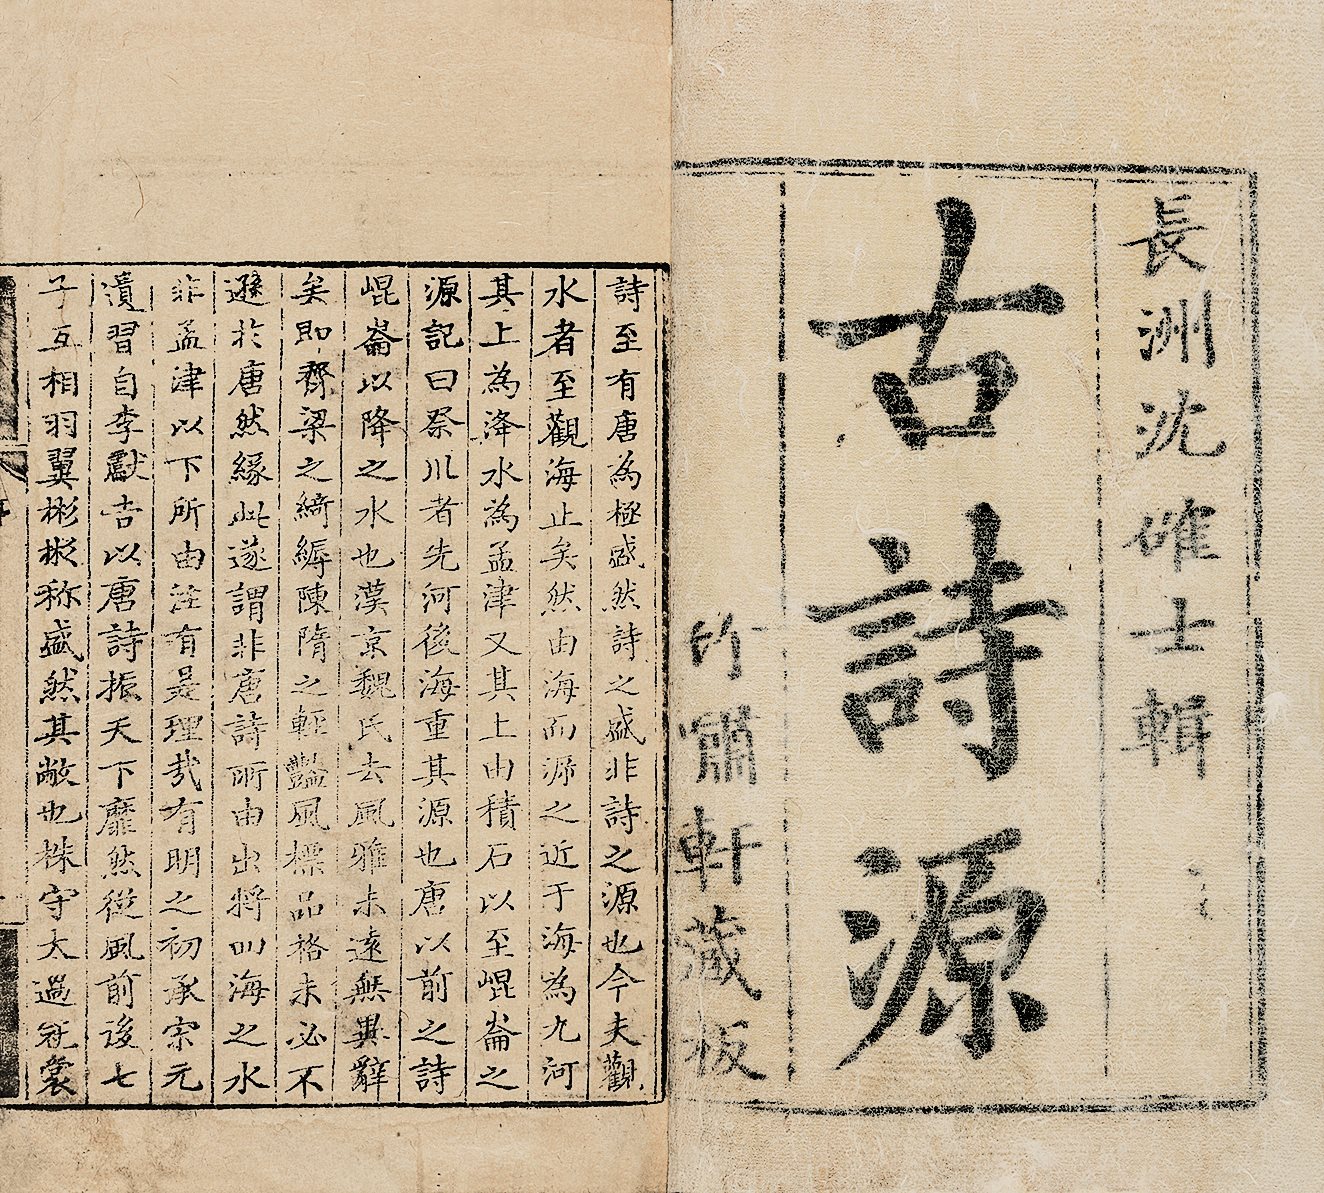 長洲沈確士輯
古詩源
竹嘯軒藏板
詩至有唐為極盛然詩之盛非詩之源也今夫觀
水者至觀海止矣然由海而溯之近于海為九河
其上為洚水為孟津又其上由積石以至崐崙之
源記曰祭川者先河後海重其源也唐以前之詩
崐崙以降之水也漢京魏氏去風雅未遠無異辭
矣即齊梁之綺縟陳隋之輕豔風標品格未必不
遜於唐然緣此遂謂非唐詩所由出將四海之水
非孟津以下所由注有是理哉有明之初承宋元
遺習自李獻吉以唐詩振天下靡然從風前後七
子互相羽翼彬彬称盛然其敝也株守太過冠裳